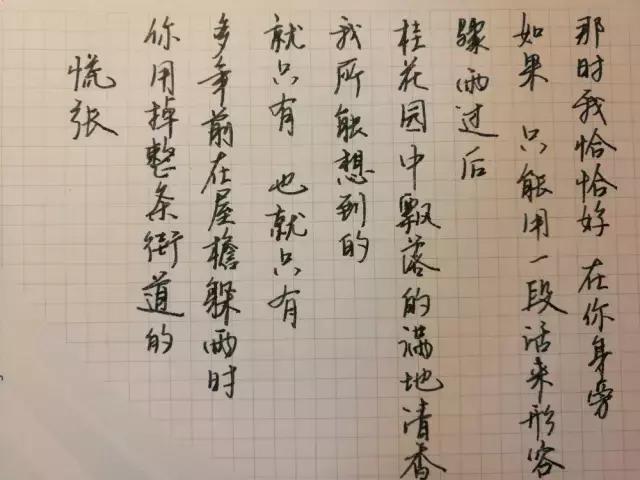 那时我恰恰好 在你身旁
如果 只能用一段话来形容
骤雨过后
桂花园中飘落的满地清香
我所能想到的
就只有 也就只有
多年前在屋檐躲雨时
你用掉整条街道的
慌张